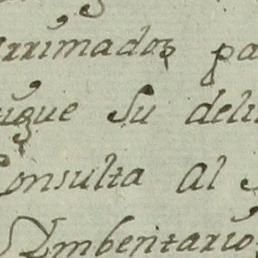 arrimados pa
que su deli
Consulta al S
Ymbentario